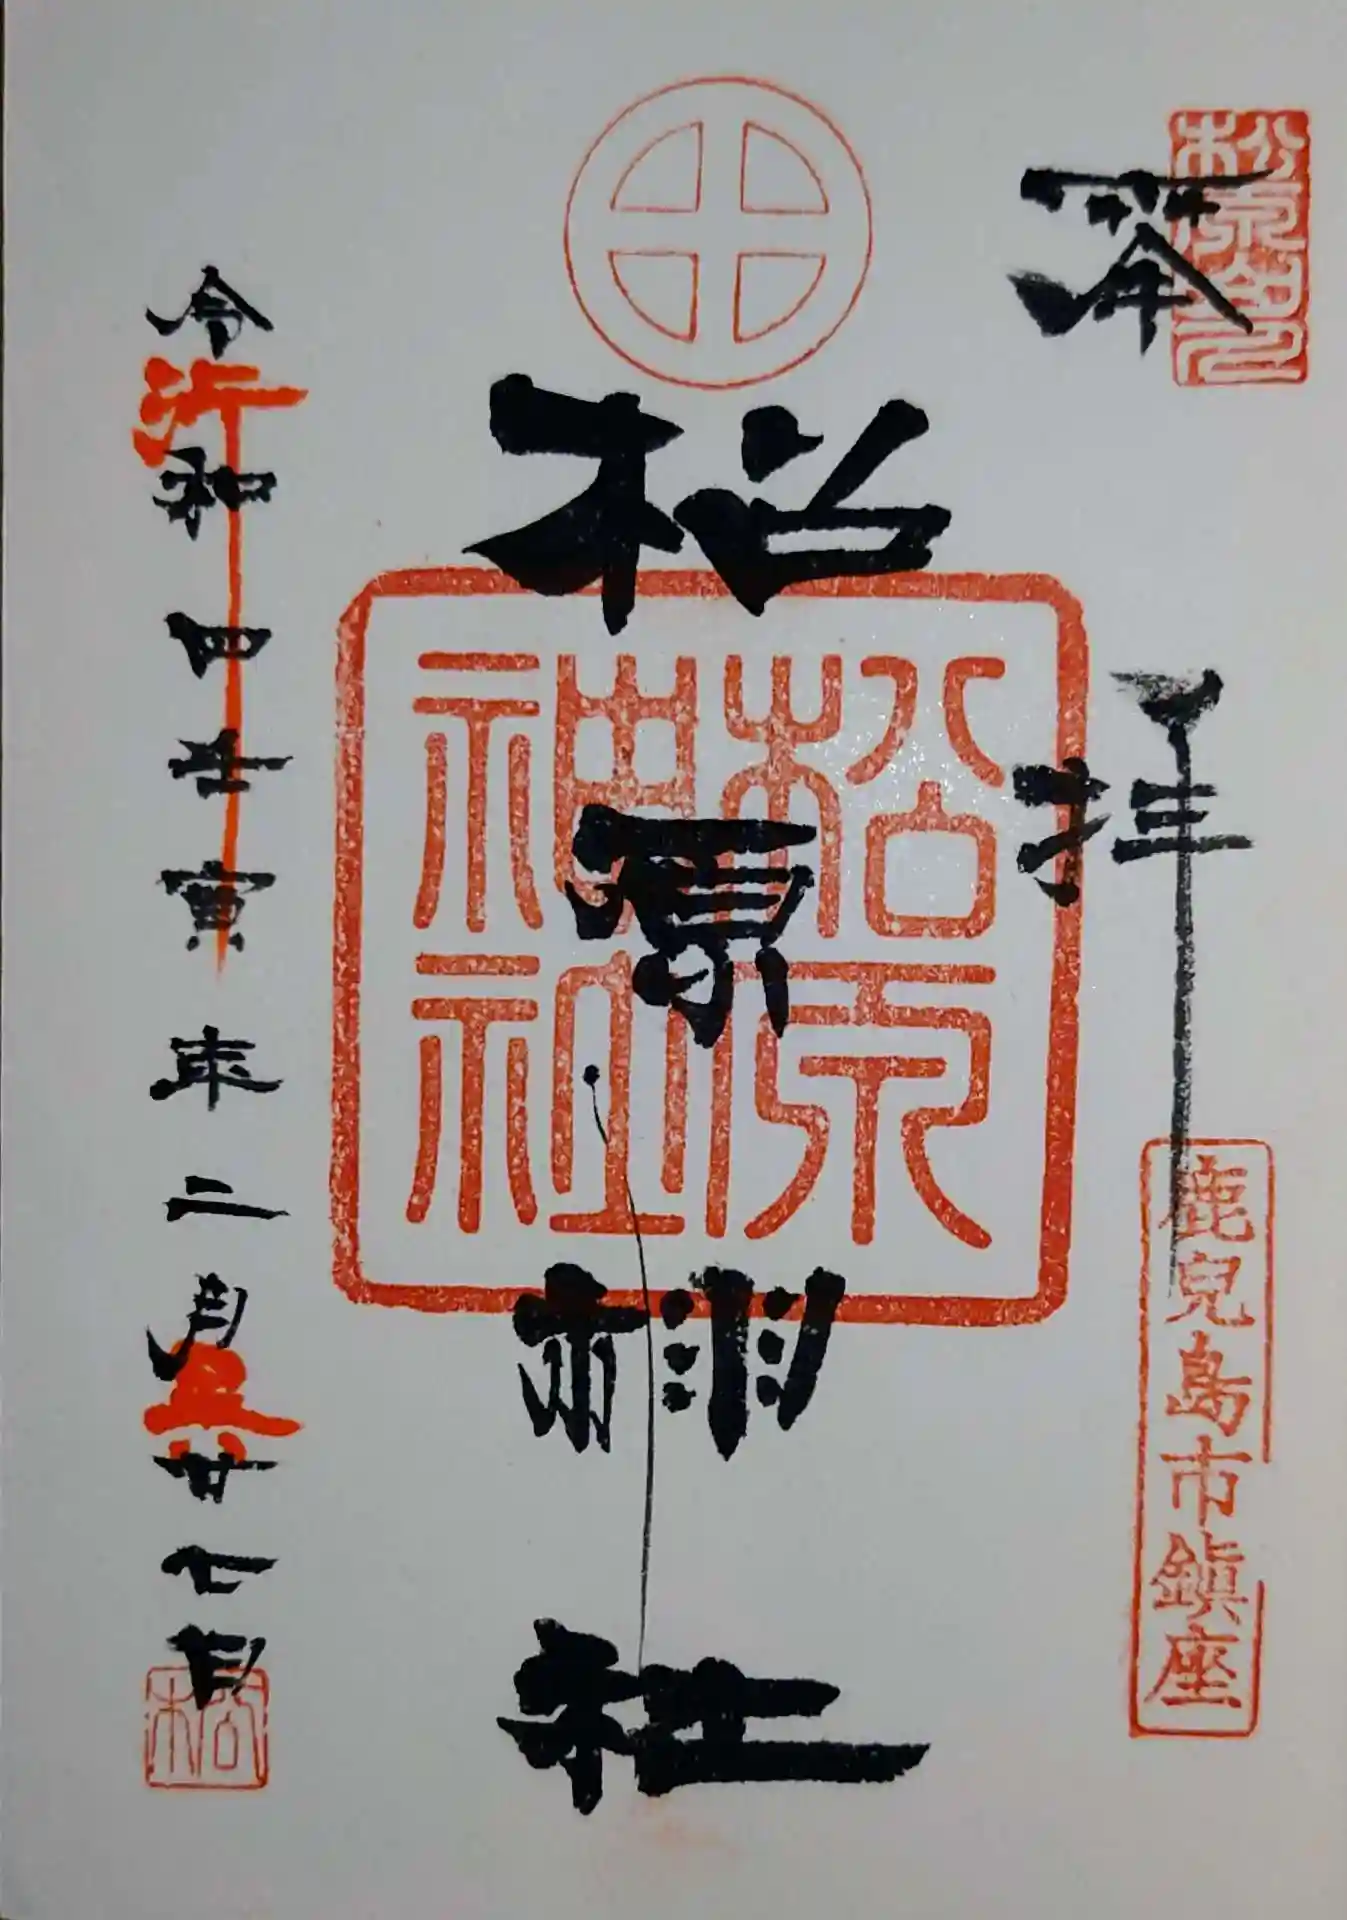 奉拝
鹿児島市鎮座
松原神社
松原神社
令和四壬寅年二月廿七日
松